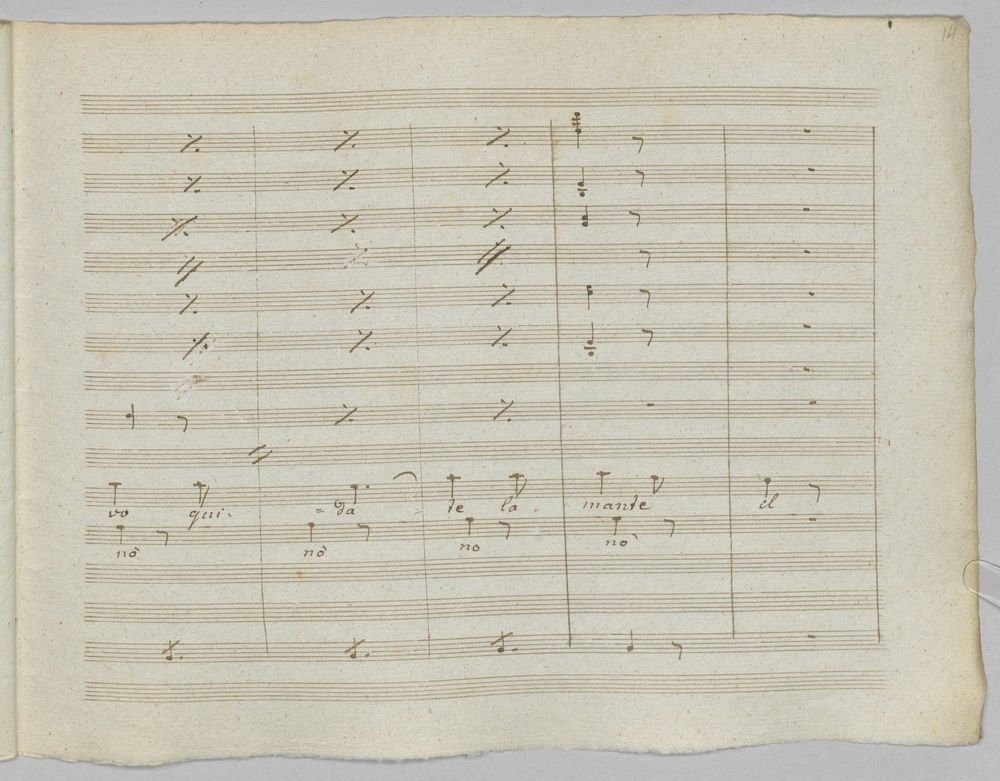 14
vo gui- = da = te la mante il
nò nò no nò